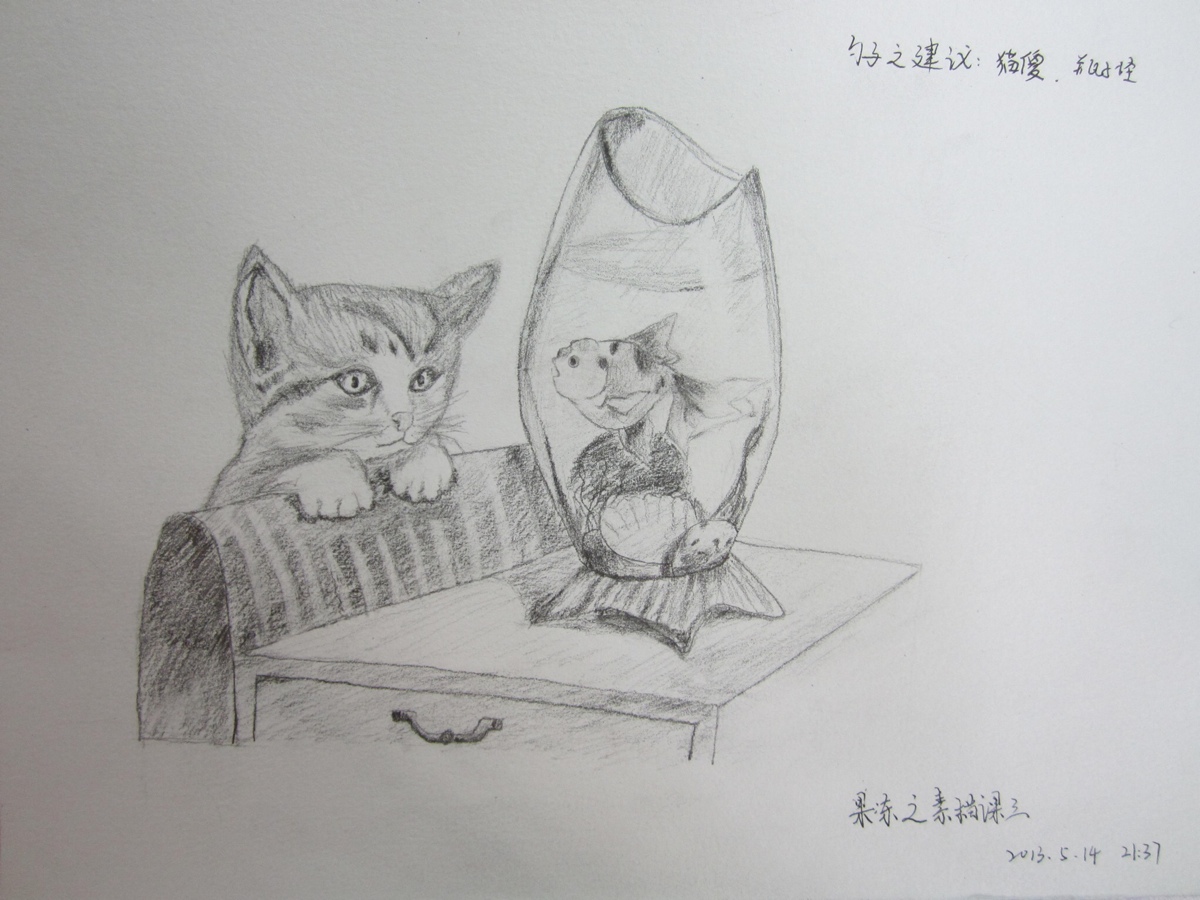 之建议：猫傻.
果冻之素描课三
2013.5.14 21:37